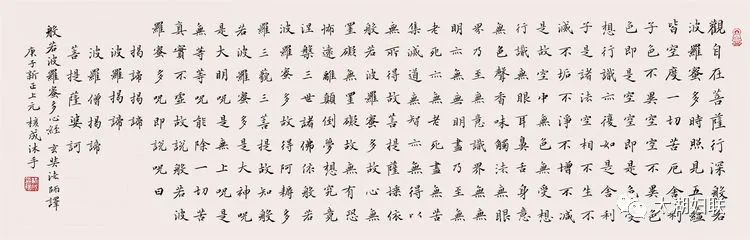 觀自在菩薩行深般若
波羅蜜多時照見五蘊
皆空度一切苦厄舍利
子色不異空空不異色
色即是空空即是色受
想行識亦復如是舍利
子是諸法空相不生不
滅不垢不淨不增不減
是故空中無色無受想
行識無眼耳鼻舌身意
無色聲香味觸法無眼
界乃至無意識界無無
明亦無無明盡乃至無
老死亦無老死盡無苦
集滅道無智亦無得以
無所得故菩提薩埵依
般若波羅蜜多故心無
罣礙無罣礙故無有恐
怖遠離顛倒夢想究竟
涅槃三世諸佛依般若
波羅蜜多故得阿耨多
羅三藐三菩提故知般
若波羅蜜多是大神呪
是大明呪是無上呪是
無等等呪能除一切苦
真實不虛故說般若波
羅蜜多呪即說呪曰
揭諦揭諦
波羅揭諦
波羅僧揭諦
菩提薩婆訶
般若波羅蜜多心經 玄奘法師譯
庚子新正上元 成沐手
太湖妇联